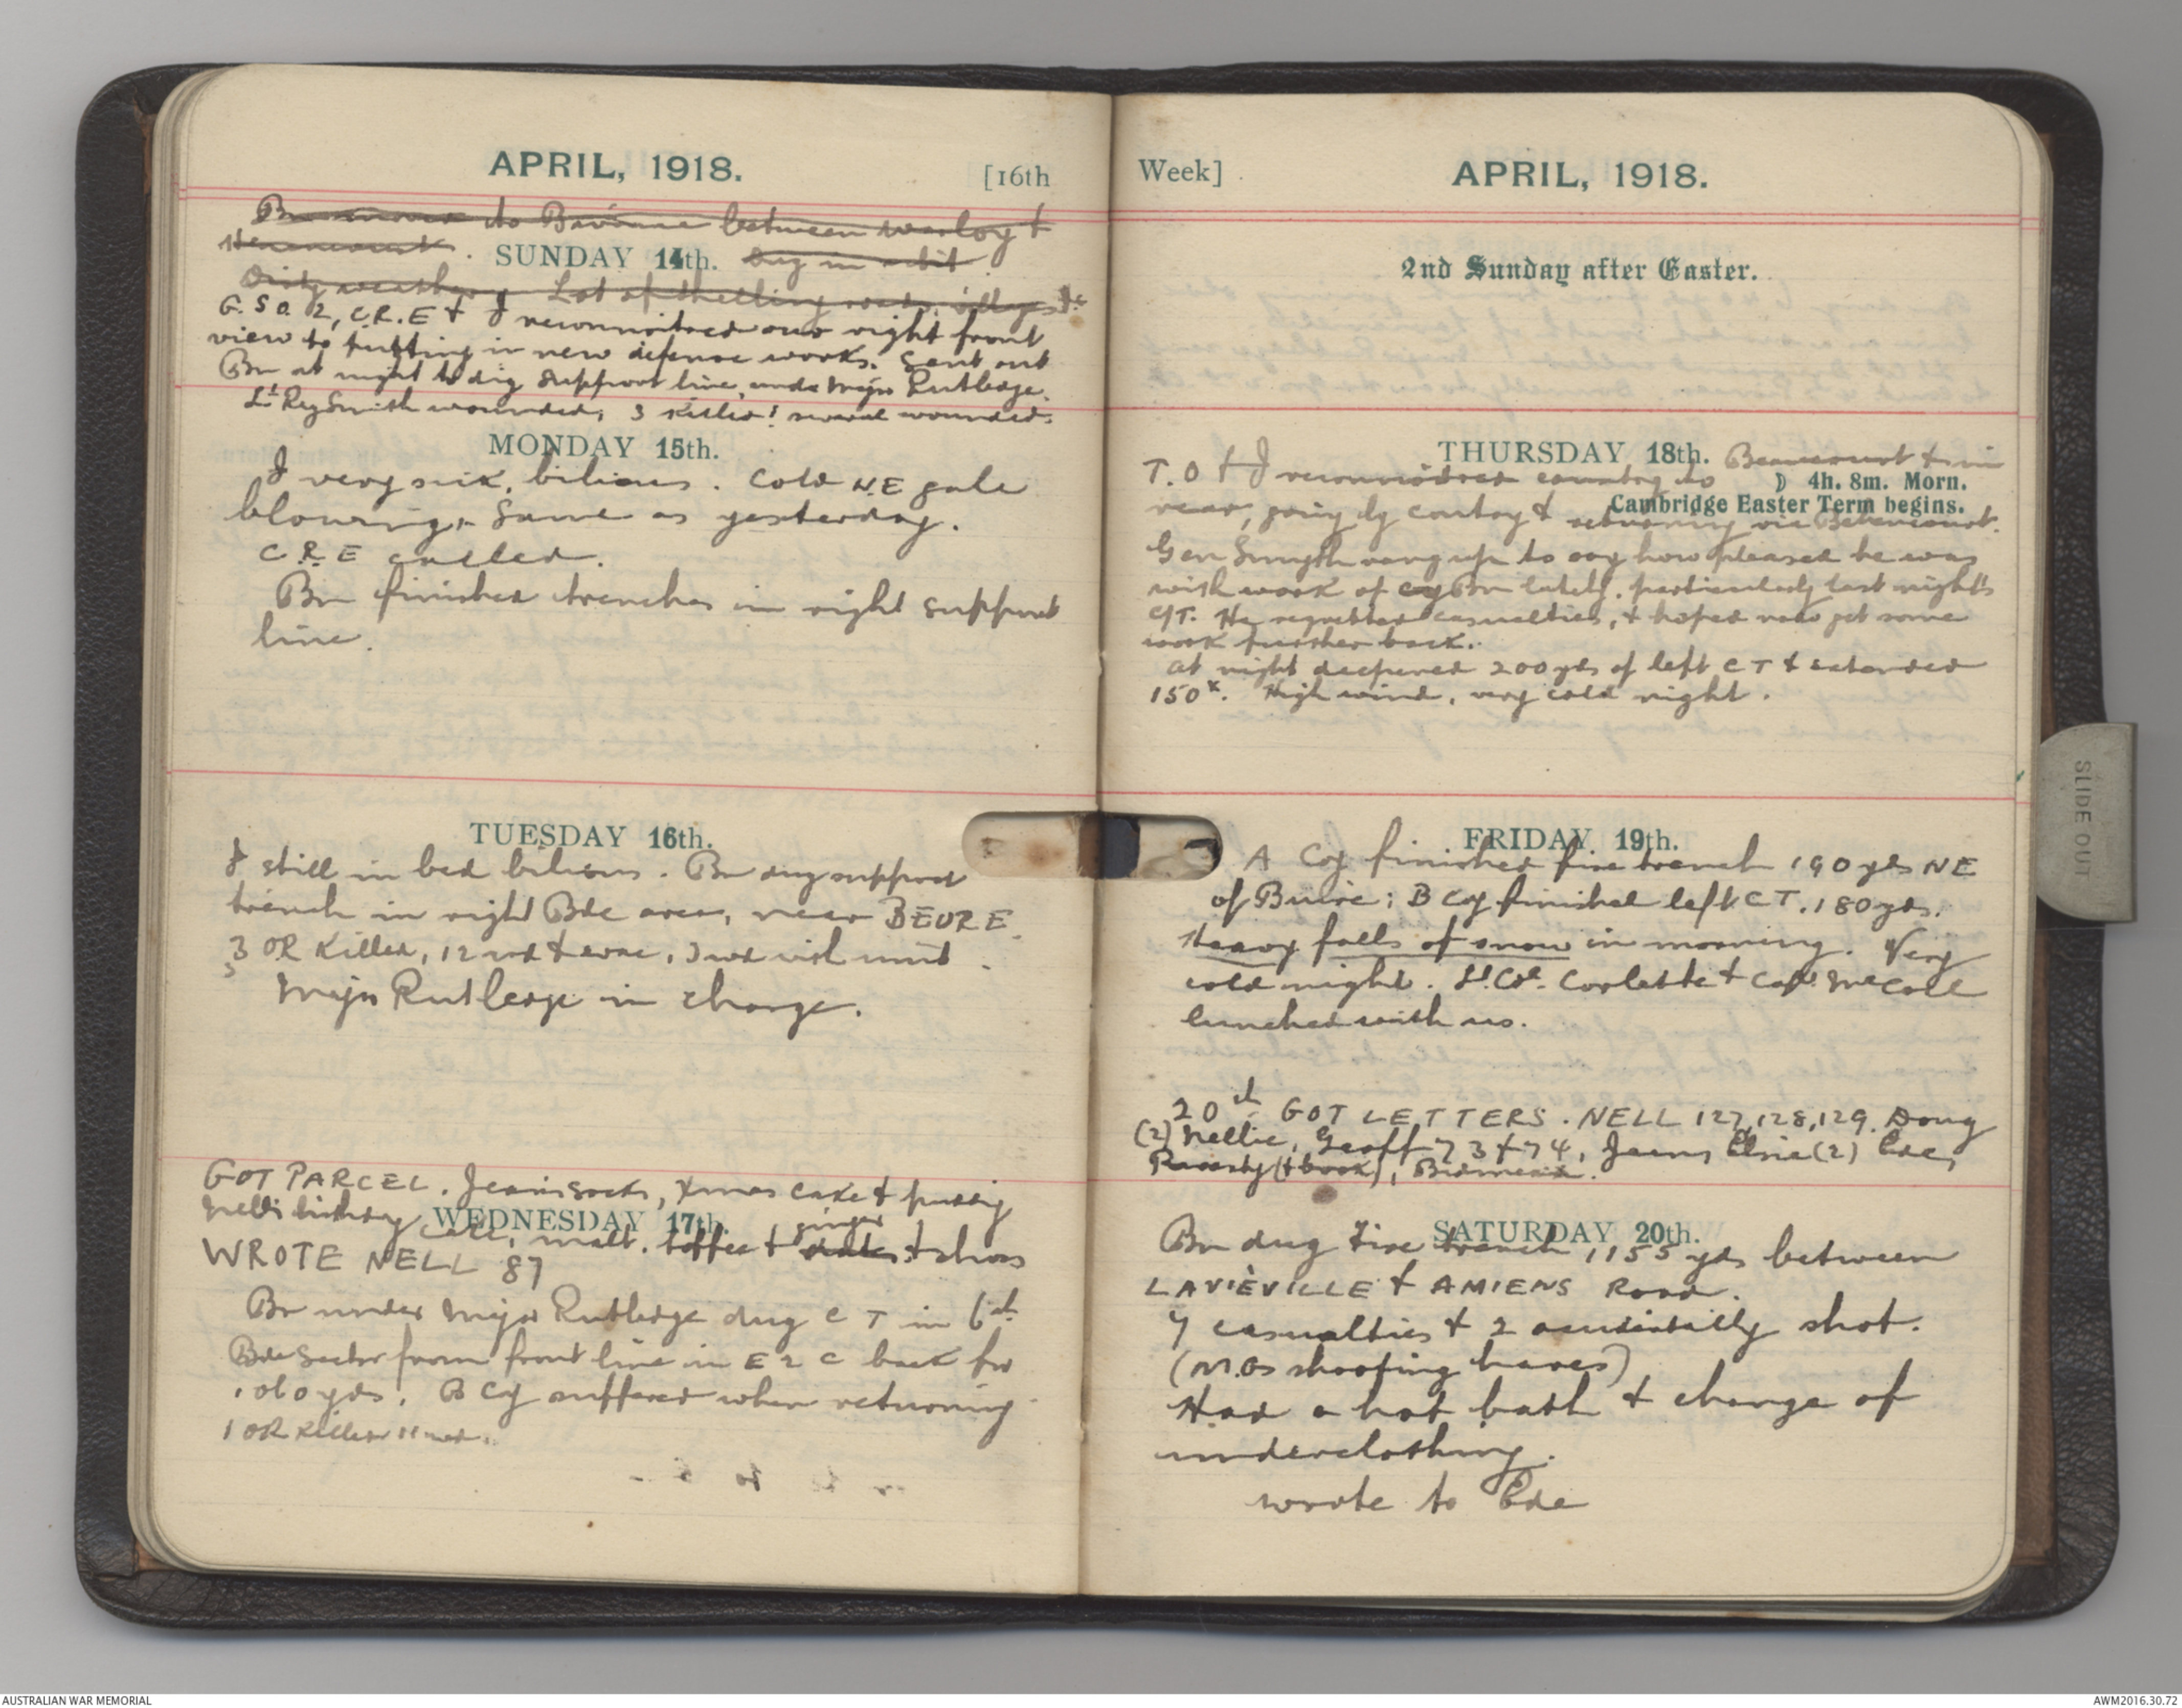 APRIL, 1918. [16th
to Bivouac between Warloy &
Henencourt.
SUNDAY 14th. Dug in a bit
Dirty weather. Lot of shelling roads, villages &c
G.S.O. 2, C.R.E & I reconnoitred our right front
view to putting in new defence works. Sent out
Bn at night to dig support line, under Major Rutledge.
Lt Reg Smith wounded, 3 killed! several wounded.
MONDAY 15th.
I very sick, bilious. Cold N.E gale
blowing. Same as yesterday.
C.R.E called.
Bn finished trenches in right support
line.
TUESDAY 16th.
I still in bed bilious. Bn dug support
trench in right Bde area, near BEURE.
3 OR Killed, 12 wd & evac, 3 wd with unit.
Major Rutledge in charge.
GOT PARCEL. Jean's socks, Xmas cake & pudding
Nell's birthday cake, malt, toffee & ginger & shoes
WEDNESDAY 17th.
WROTE NELL 87
Bn under Major Rutledge dug C T in 6th
Bde Sector from front line in E 2 C back for
1060 yds. B Coy suffered when returning
1 OR killed 11 wd.
Week] APRIL, 1918.
2nd Sunday after Easter.
THURSDAY 18th. Beaucourt &
☽ 4h. 8m. Morn.
Cambridge Easter Term begins.
T.O & I reconnoitred country to
rear, going by & returning via Behencourt.
Gen Smyth rang up to say how pleased he was
with work of Bn lately, particularly last night's
CT. He regretted casualties, & hoped we'd get some
work further back.
At night deepened 200 yds of left C T & extended
150x. High wind, very cold night.
FRIDAY 19th.
A Coy finished fire trench 190 yds NE
of Buire; B Coy finished left C T. 180 yds.
Heavy falls of snow in morning. Very
cold night. Lt. Col. Corlette & Capt McCall
lunched with us.
20th GOT LETTERS. NELL 127, 128, 129. Doug
(2) Nellie, Geoff 73 & 74, Jean, Elsie (2) Ede,
(& book),
SATURDAY 20th.
Bn dug Fire trench 1155 yds between
LAVIÈVILLE & AMIENS Road.
7 casualties & 2 accidentally shot.
(M.Os shooting hares)
Had a hot bath & change of
underclothing.
wrote to Ede
SLIDE OUT
AUSTRALIAN WAR MEMORIAL
AWM2016.30.72